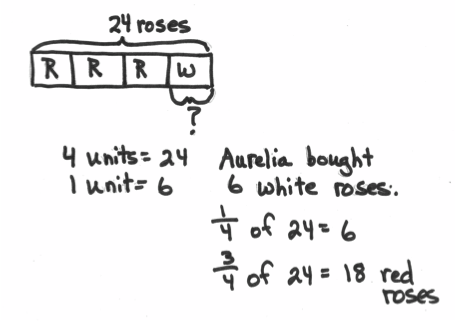 24 roses
R R R W
?
4 units = 24 Aurelia bought
1 unit = 6 6 white roses.
1/4 of 24 = 6
3/4 of 24 = 18 red
roses